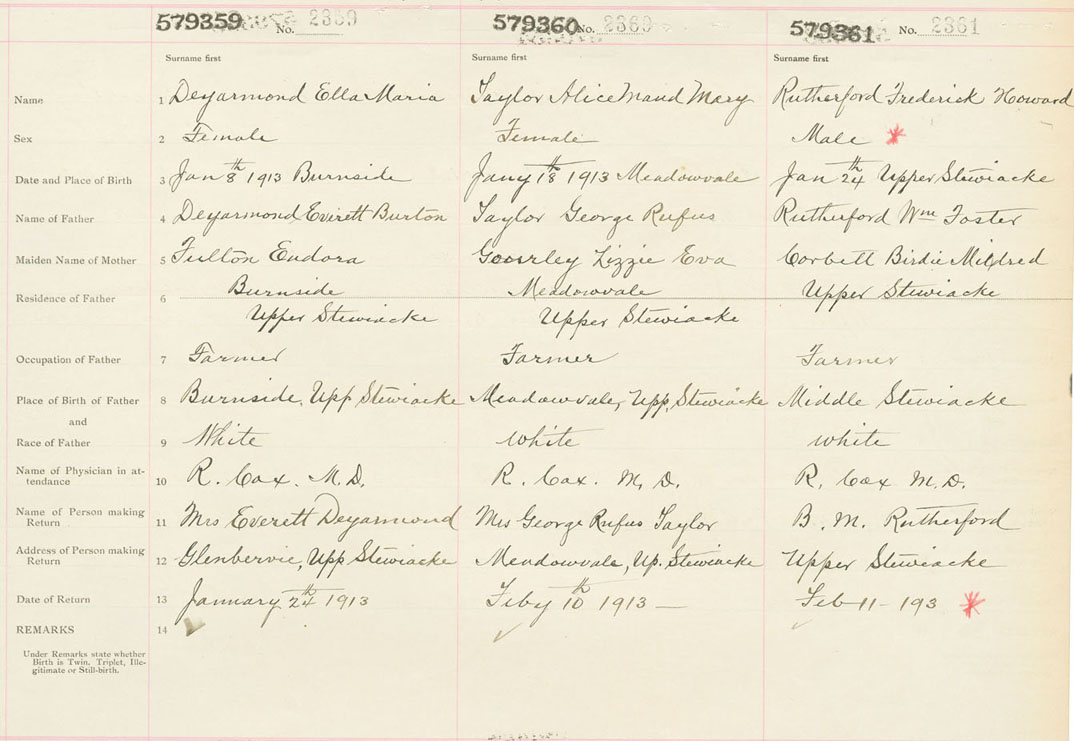 579359 No. 2359 579360 No. 2360 579361 No. 2361
Surname first Surname first Surname first
Name 1 Deyarmond Ella Maria Taylor Alice Maud Mary Rutherford Frederick Howard
Sex 2 Female Female Male
Date and Place of Birth 3 Jan 8th 1913 Burnside Jany 18th 1913 Meadowvale Jan 24th Upper Stewiacke
Name of Father 4 Deyarmond Everett Burton Taylor George Rufus Rutherford Wm Foster
Maiden Name of Mother 5 Fulton Eudora Gourley Lizzie Eva Corbett Birdie Mildred
Residence of Father 6 Burnside Meadowvale Upper Stewiacke
Upper Stewiacke Upper Stewiacke
Occupation of Father 7 Farmer Farmer Farmer
Place of Birth of Father 8 Burnside, Upp Stewiacke Meadowvale, Upp, Stewiacke Middle Stewiacke
and
Race of Father 9 White white white
Name of Physician in at-
tendance 10 R. Cox. M.D. R. Cox. M. D. R. Cox M.D.
Name of Person making
Return 11 Mrs Everett Deyarmond Mrs George Rufus Taylor B. M. Rutherford
Address of Person making
Return 12 Glenbervie, Upp Stewiacke Meadowvale, Up. Stewiacke Upper Stewiacke
Date of Return 13 January 24th 1913 Feby 10th 1913 — Feb 11 - 193
REMARKS 14
Under Remarks state whether
Birth is Twin, Triplet, Ille-
gitimate or Still-birth.